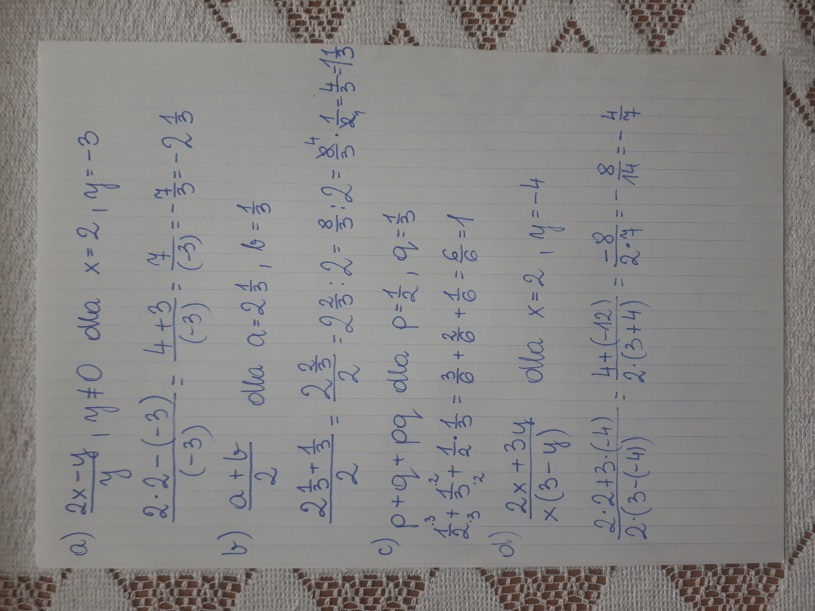 a) (2x-y)/y , y≠0 dla x=2 , y=-3
(2·2-(-3))/(-3) = (4+3)/(-3) = 7/(-3) = -7/3 = -2 1/3
b) (a+b)/2 dla a=2 1/3 , b=1/3
(2 1/3 + 1/3)/2 = (2 2/3)/2 = 2 2/3 : 2 = 8/3 : 2 = 8/3 · 1/2 = 4/3 = 1 1/3
c) p+q+pq dla p=1/2 , q=1/3
1/2 + 1/3 + 1/2 · 1/3 = 3/6 + 2/6 + 1/6 = 6/6 = 1
d) (2x+3y)/(x(3-y)) dla x=2 , y=-4
(2·2+3·(-4))/(2·(3-(-4))) = (4+(-12))/(2·(3+4)) = (-8)/(2·7) = -8/14 = -4/7